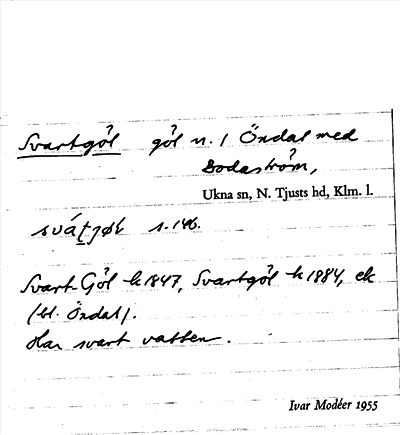 Svartgöl göl n. / Öndal med
Bodaström,
Ukna sn, N. Tjusts hd, Klm. l.
svátjøl s. 146.
Svart-Göl k 1847, Svartgöl k 1884, ek
(bl. Öndal).
Har svart vatten.
Ivar Modéer 1955